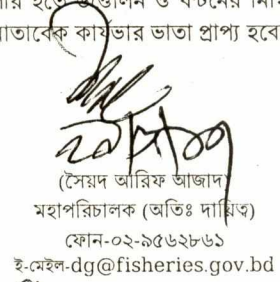 হতে উত্তোলন ও বণ্টনের
কার্যভার ভাতা প্রাপ্য হবে
(সৈয়দ আরিফ আজাদ)
মহাপরিচালক (অতিঃ দায়িত্ব)
ফোন-০২-৯৫৬২৮৬১
ই-মেইল-dg@fisheries.gov.bd